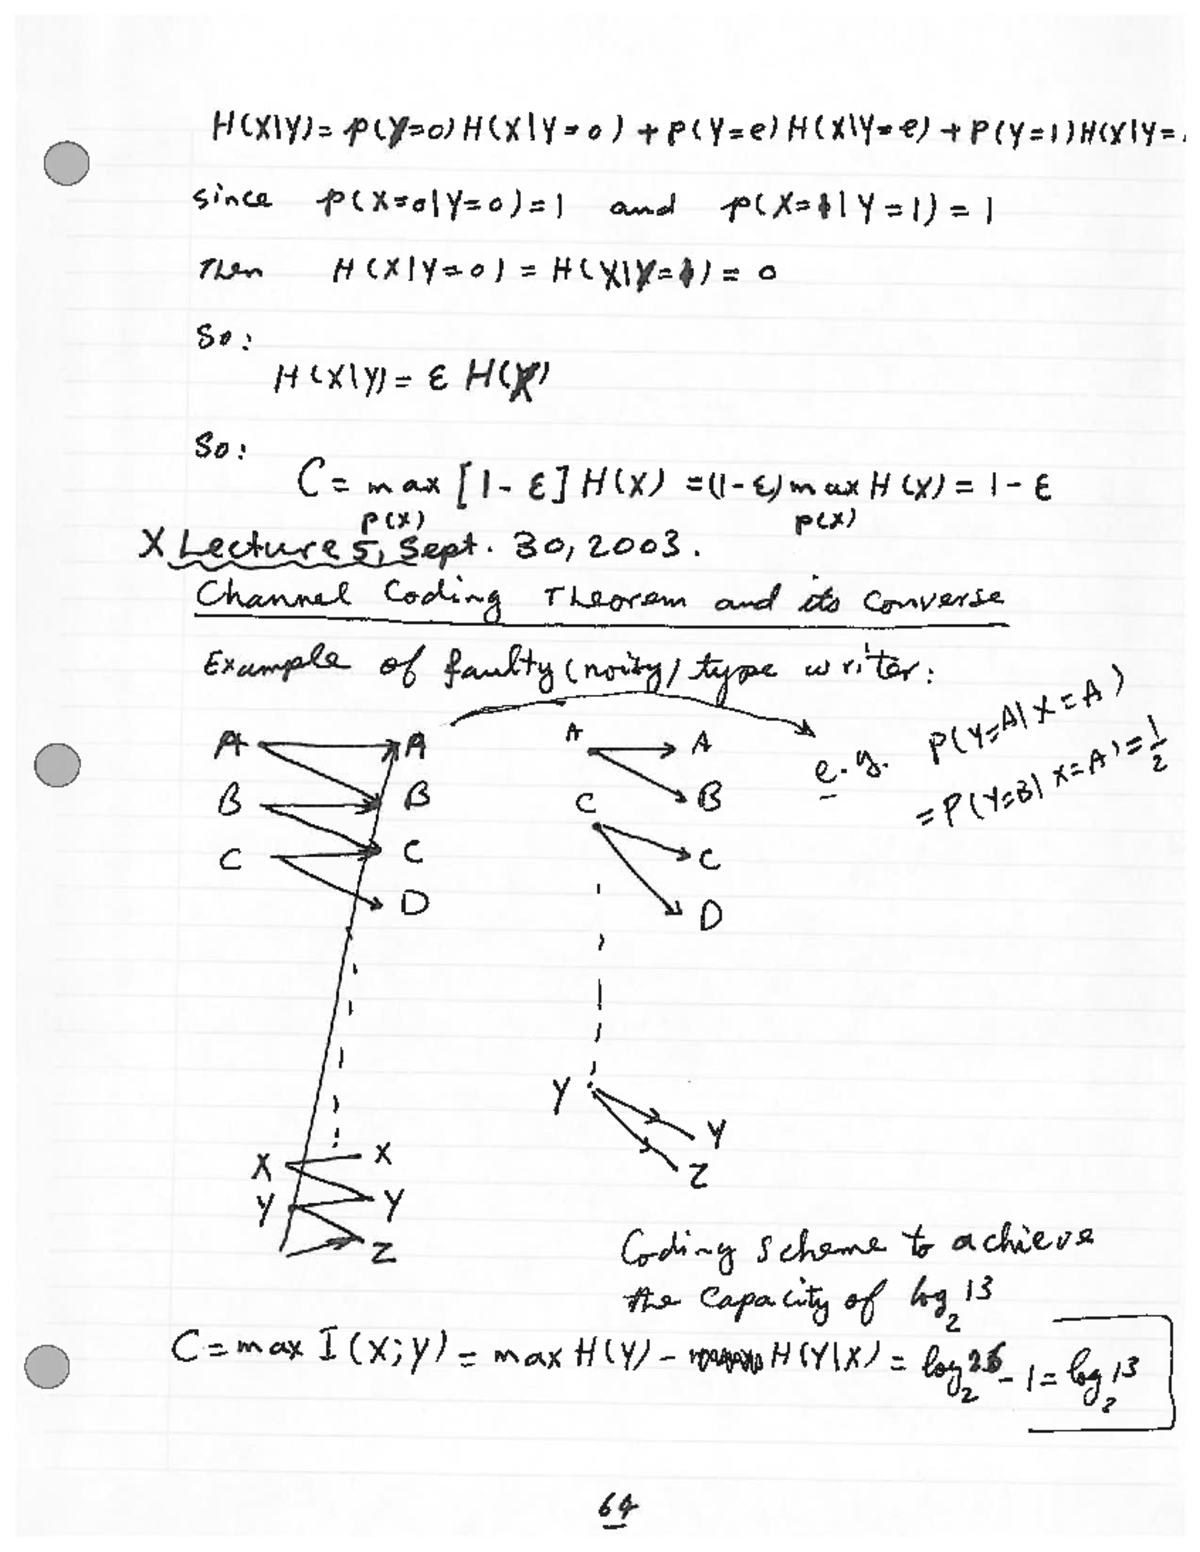 H(X|Y) = p(Y=0) H(X|Y=0) + P(Y=e) H(X|Y=e) + P(Y=1) H(X|Y=
since p(X=0|Y=0)=1 and p(X=1|Y=1) = 1
Then H(X|Y=0) = H(X|Y=1) = 0
So:
H(X|Y) = ε H(X)
So:
C = max [1-ε] H(X) = (1-ε) max H(X) = 1-ε
p(X) p(X)
X Lecture 5, Sept. 30, 2003.
Channel Coding Theorem and its Converse
Example of faulty (noisy) type writer:
e.g. P(Y=A|X=A)
= P(Y=B|X=A) = 1/2
A A A A
B B B
C
C C C
D D
Y
X X Y
Y Y Z
Z
Coding scheme to achieve
the Capacity of log₂ 13
C = max I(X;Y) = max H(Y) - H(Y|X) = log₂ 26 - 1 = log₂ 13
64